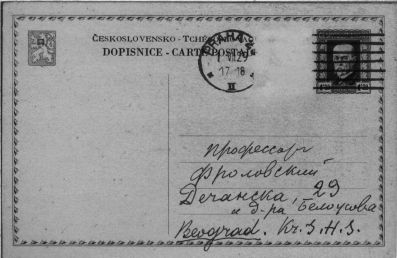 ČESKOSLOVENSKO - TCHÉ
DOPISNICE - CARTE POSTALE
PRAHA
VII 29
17-18
II
профессоръ
Фроловский
Дечанска, 29
и д-ра Белоусова
Beograd, Kr. S.H.S.